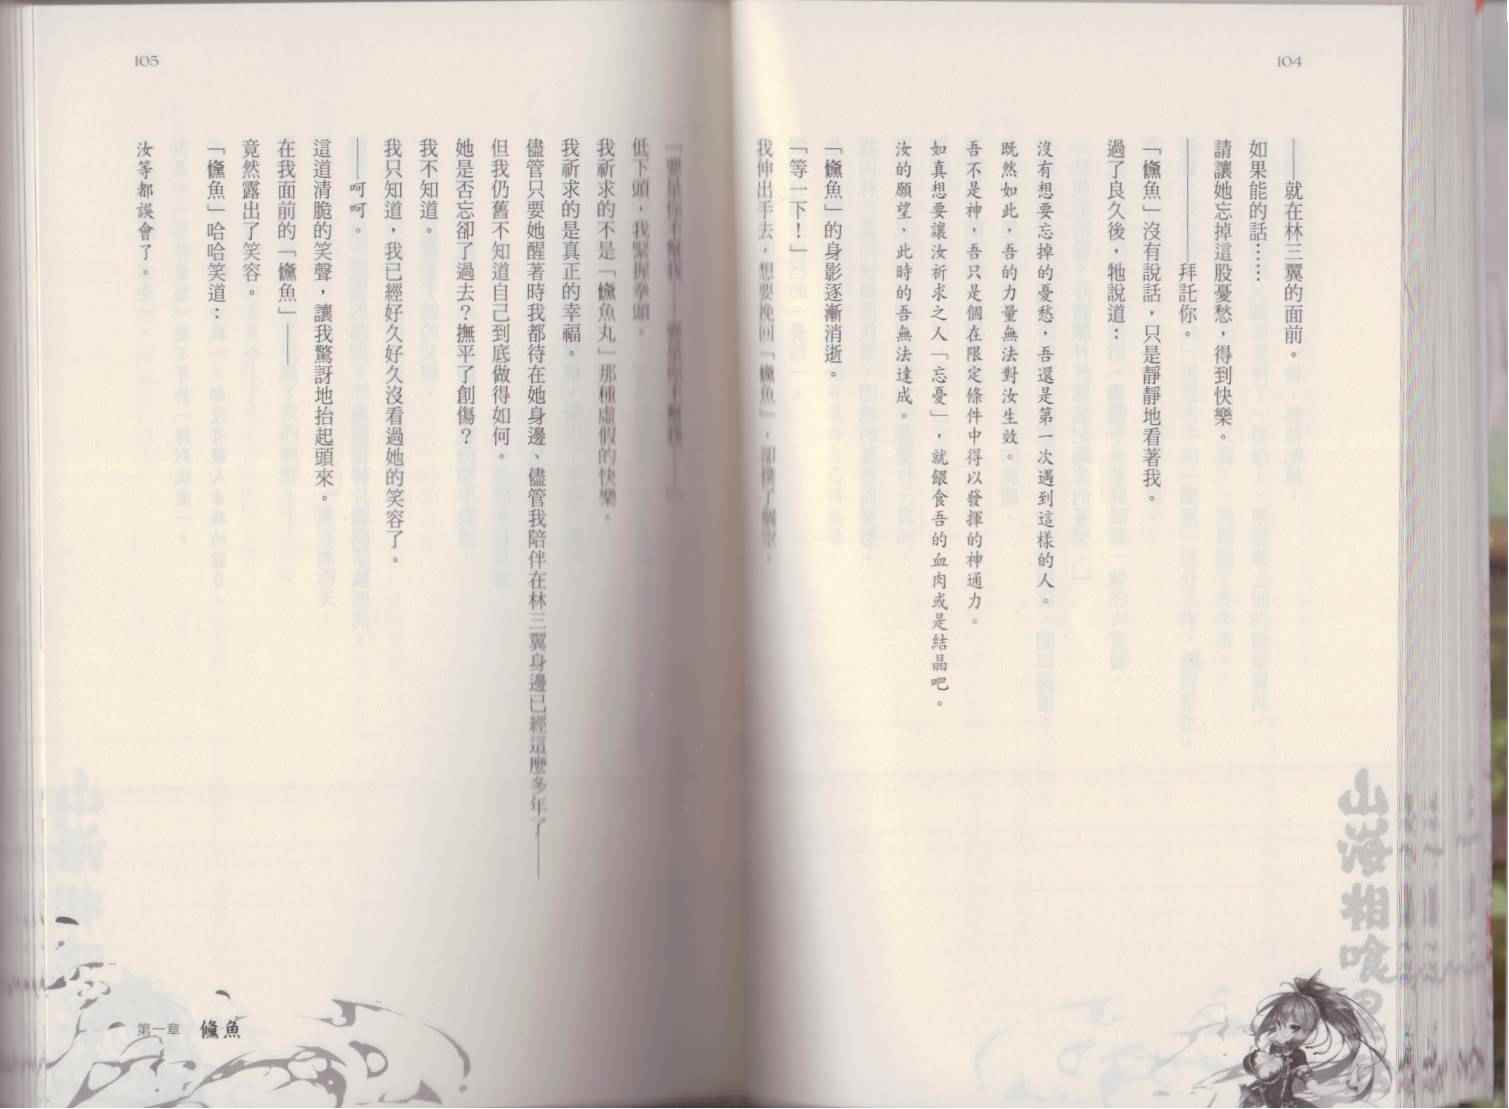 104
——就在林三翼的面前。
如果能的話……
請讓她忘掉這股憂愁，得到快樂。
————拜託你。
「儵魚」沒有說話，只是靜靜地看著我。
過了良久後，牠說道：
沒有想要忘掉的憂愁，吾還是第一次遇到這樣的人。
既然如此，吾的力量無法對汝生效。
吾不是神，吾只是個在限定條件中得以發揮的神通力。
如真想要讓汝祈求之人「忘憂」，就餵食吾的血肉或是結晶吧。
汝的願望、此時的吾無法達成。
「儵魚」的身影逐漸消逝。
「等一下！」
我伸出手去，想要挽回「儵魚」，卻撲了個空。
山海相喰
105
低下頭，我緊握拳頭。
我祈求的不是「儵魚丸」那種虛假的快樂。
我祈求的是真正的幸福。
儘管只要她醒著時我都待在她身邊、儘管我陪伴在林三翼身邊已經這麼多年了——
但我仍舊不知道自己到底做得如何。
她是否忘卻了過去？撫平了創傷？
我不知道。
我只知道，我已經好久好久沒看過她的笑容了。
——呵呵。
這道清脆的笑聲，讓我驚訝地抬起頭來。
在我面前的「儵魚」——
竟然露出了笑容。
「儵魚」哈哈笑道：
汝等都誤會了。
第一章 儵魚